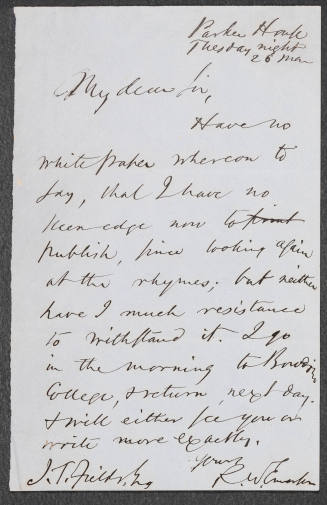 Parker House
Tuesday night
26 Mar
My dear Sir,
Have no
white paper whereon to
say, that I have no
keen edge now to print
publish, since looking again
at the rhymes; but neither
have I much resistance
to withstand it. I go
in the morning to Bowdoin
College, & return, next day.
& will either see you or
write more exactly.
Yours
J. T. Fields, Esq R. W. Emerson